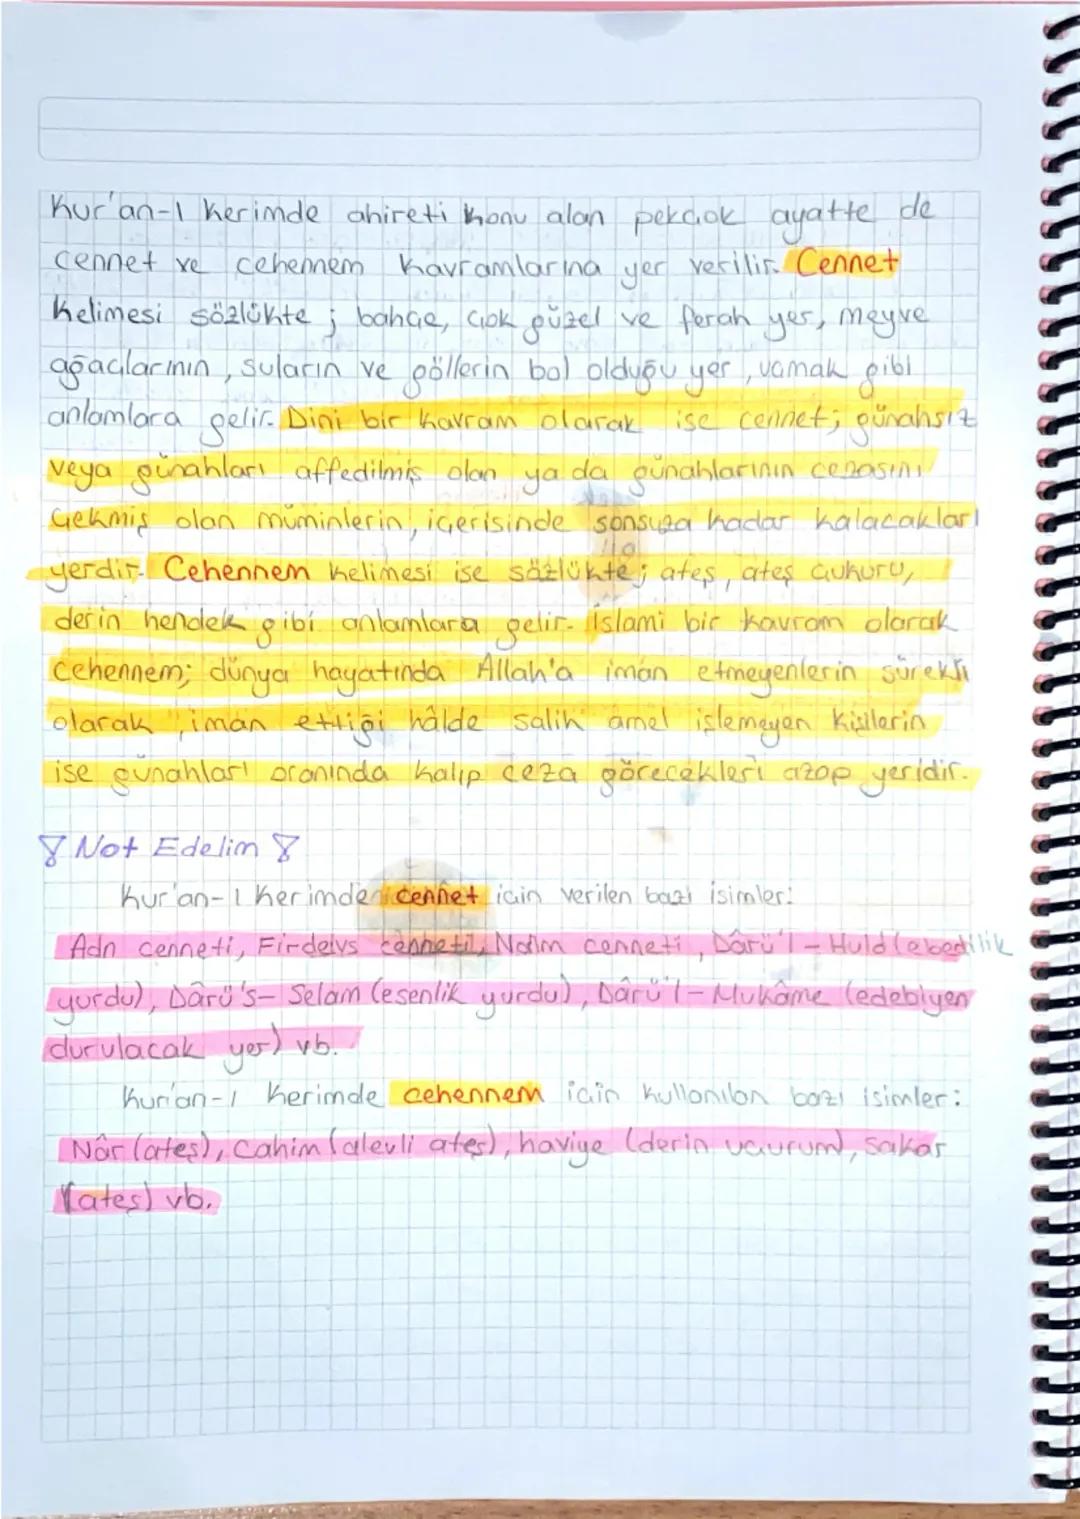 Kur'an-ı Kerimde ahireti konu alan pekçok ayatte de
cennet ve cehennem kavramlarına yer verilir. Cennet
kelimesi sözlükte ; bahçe, çok güzel ve ferah yer, meyve
ağaçlarının , suların ve göllerin bol olduğu yer , vamak gibi
anlamlara gelir. Dini bir kavram olarak ise cennet; günahsız
veya günahları affedilmiş olan ya da günahlarının cezasını
çekmiş olan müminlerin, içerisinde sonsuza kadar kalacakları
yerdir. Cehennem kelimesi ise sözlükte; ateş, ateş çukuru,
derin hendek gibi anlamlara gelir. İslami bir kavram olarak
cehennem; dünya hayatında Allah'a iman etmeyenlerin sürekli
olarak , iman ettiği hâlde salih amel işlemeyen kişilerin
ise günahları oranında kalıp ceza görecekleri azap yeridir.
Not Edelim
Kur'an-ı Kerimde cennet için verilen bazı isimler:
Adn cenneti, Firdevs cenneti, Naîm cenneti, Dârü'l-Huld (ebedilik
yurdu), Dârü's-Selam (esenlik yurdu), Dârü'l-Mukâme (edebiyen
durulacak yer) vb.
Kur'an-ı Kerimde cehennem için kullanılan bazı isimler:
Nâr (ateş), Cahim (alevli ateş), haviye (derin uçurum), sakar
(ateş) vb.